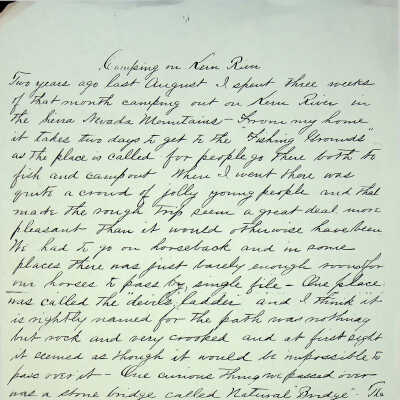 Camping on Kern River
Two years ago last August I spent three weeks
of that month camping out on Kern River in
the Sierra Nevada Mountains - From my home
it takes two days to get to the "Fishing Grounds"
as the place is called for people go there both to
fish and campout When I went there was
quite a crowd of jolly young people and that
made the rough trip seem a great deal more
pleasant than it would otherwise have been
We had to go on horseback and in some
places there was just barely enough room for
our horses to pass by single file - One place
was called the devils "ladder" and I think it
is rightly named for the path was nothing
but rock and very crooked and at first sight
it seemed as though it would be impossible to
pass over it - One curious thing we passed over
was a stone bridge called "Natural Bridge". The